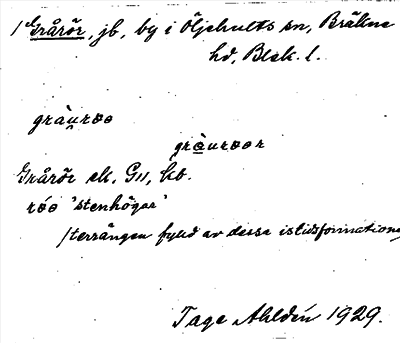 1/ Grårör, jb, by i Öljehults sn, Bräkne
hd, Blek. l.
gràu̠røø
grò̠urøør
Gråröe ek, G11, kb.
røø 'stenhögar'
/terrängen fylld av dessa istidsformationer
Tage Ahldén 1929.